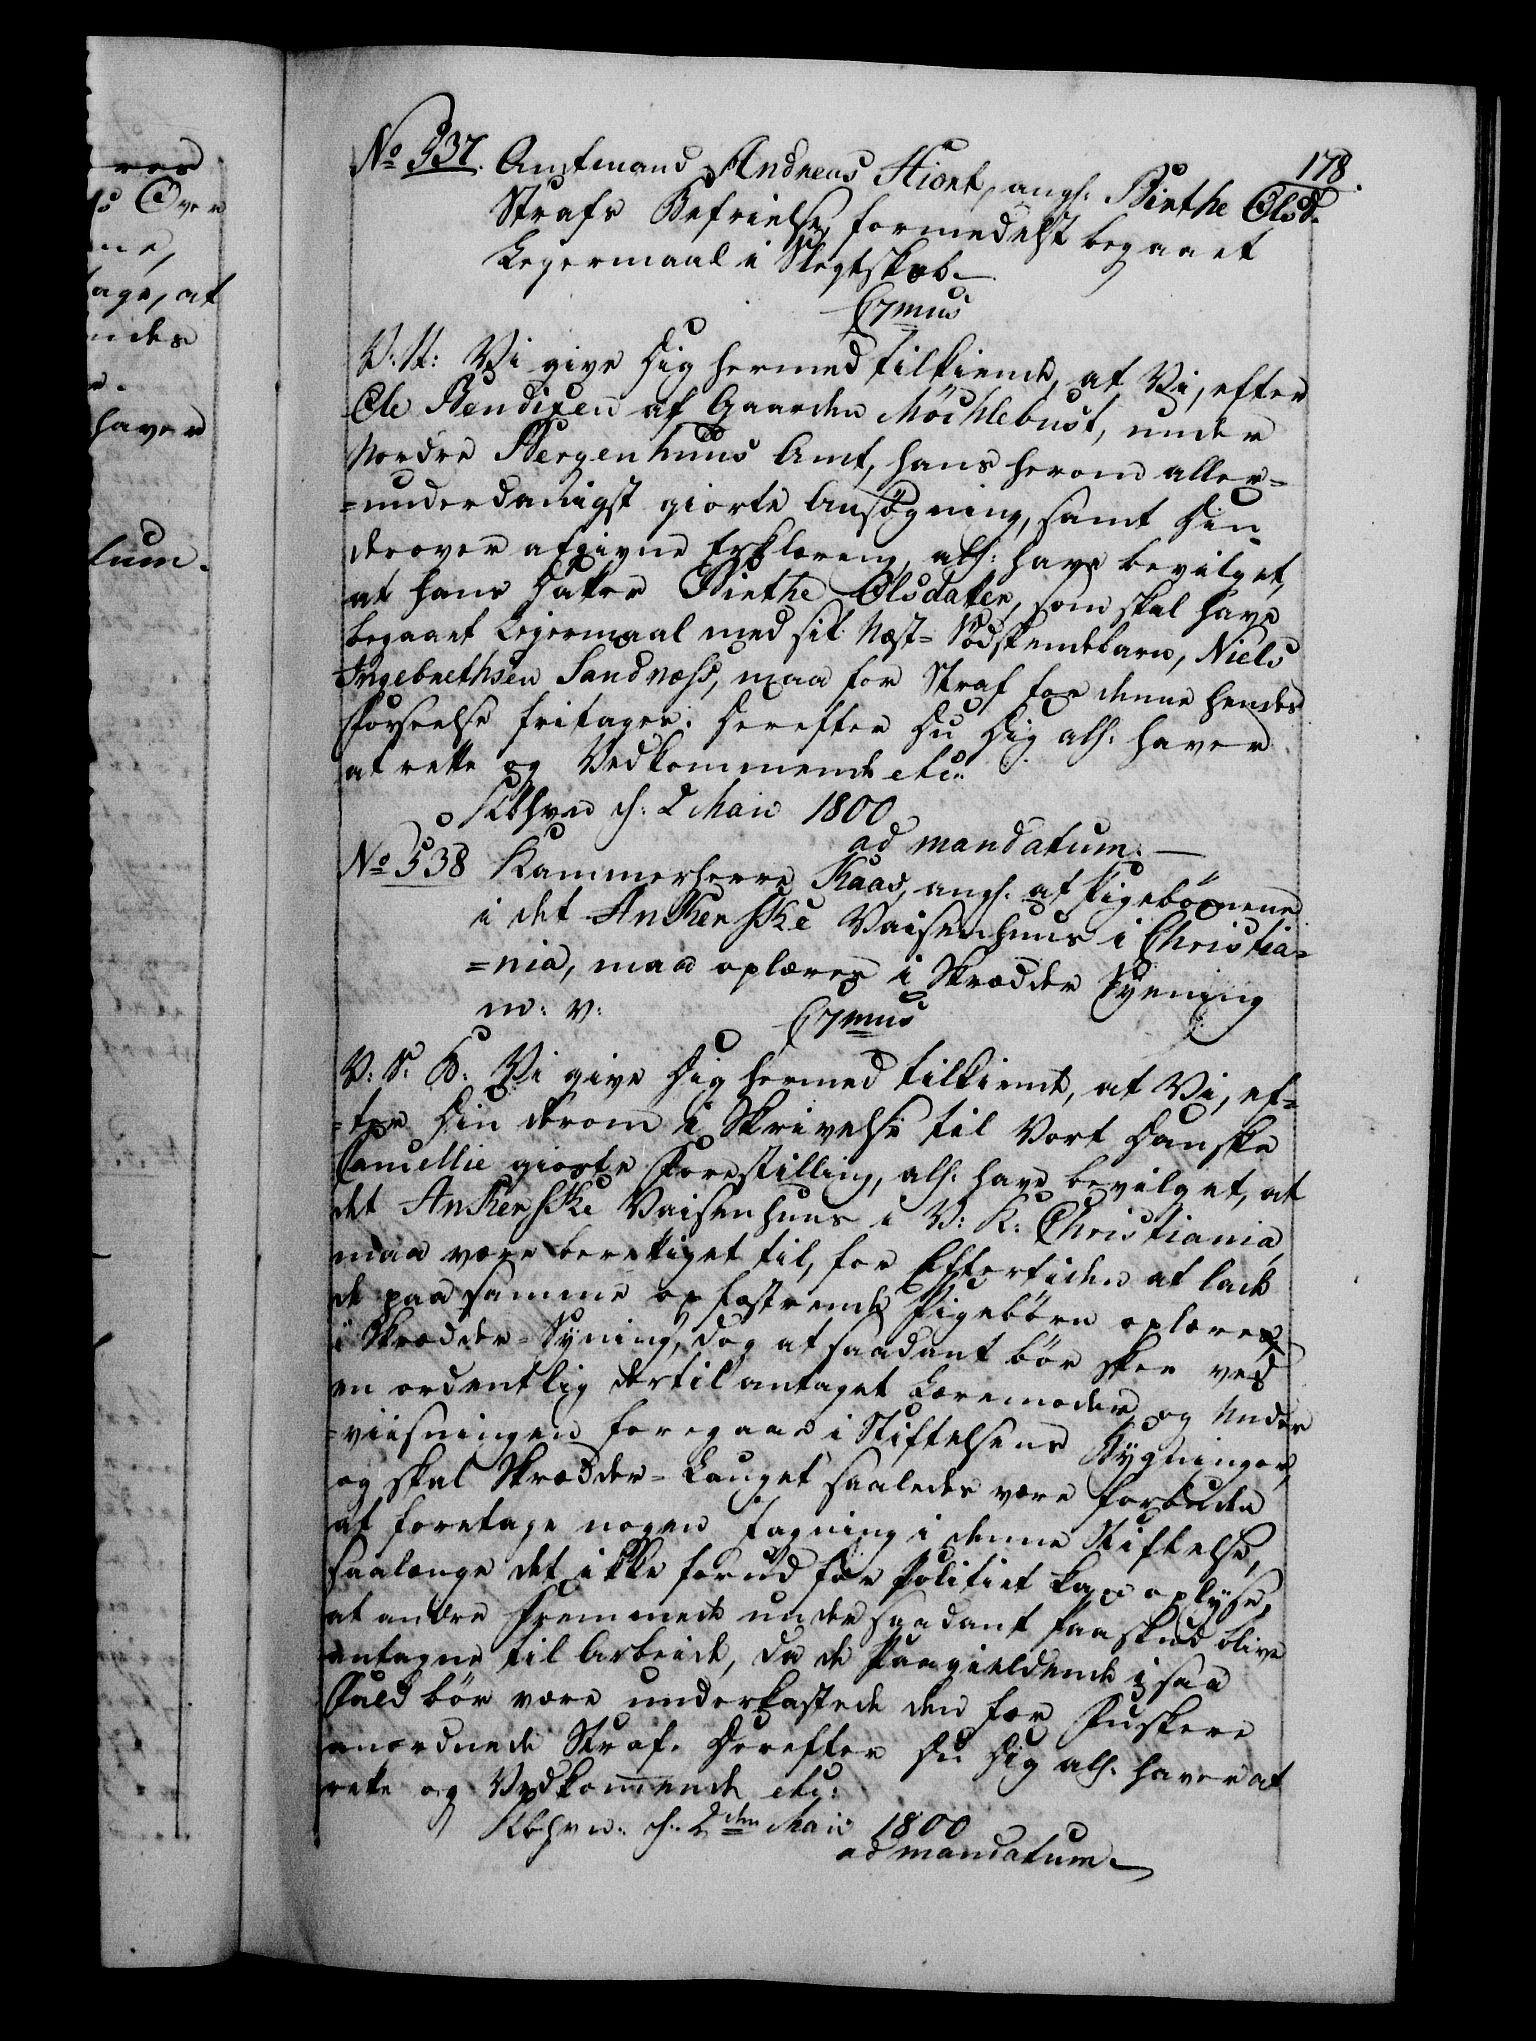 178.
No 537. Amtmand Andreas Hiort, angl. Birthe Olsd.
Strafs Befrielse formedelst begaaet
Legermaal i Slegtskab. —
C7mus
V: A: Vi give Dig hermed tilkiende, at Vi, efter
Ole Bendixen af Gaarden Möchlebust, under
Nordre Bergenhuus Amt, hans herom aller=
=underdanigst giorte Ansøgning, samt Din
derover afgivne Erklæring, all: have bevilget,
at hans Datter Birthe Olsdatter, som skal have
begaaet Leiermaal med sit Næst=Sødskendebarn, Niels
Ingebrethsen Sandnæss, maa for Straf for denne hendes
Forseelse fritages. Derefter Du Dig all: haver
at rette og Vedkommende etc:
Kbhvn d: 2 Maii 1800
ad mandatum. —
No 538 Kammerherre Kaas, angl. at Pigebørnene
i det Ankerske Vaisenhuus i Christia=
=nia, maa oplæres i Skrædder Syening
m: v:
C7mus
V: S. B: Vi give Dig hermed tilkiende, at Vi, ef=
=ter Din derom i Skrivelse til Vort Danske
Cancellie giorte Forestilling, all: have bevilget, at
det Ankerske Vaisenhuus i V: K: Christiania,
maa være berettiget til, for Eftertiden at lade
de paa samme opfostrende Pigebørn oplære
i Skrædder=Syning, dog at saadant bør skee ved
en ordentlig dertil antaget Læremoder og Under
=viisningen foregaae i Stiftelsens Bygninger,
og skal Skrædder=Lauget saaledes være forbuden
at foretage nogen Jagning i denne Stiftelse,
saalænge det ikke forud for Politiet kan oplyse,
at andre Fremmede under saadant Paaskud blive
antagne til Arbeide, da de Paagieldende i saa
Fald bør være underkastede den for Fuskere
anordnede Straf. Derefter Du Dig all: haver at
rette og Vedkommende etc:
Kbhvn: d: 2den Maii 1800
ad mandatum. —